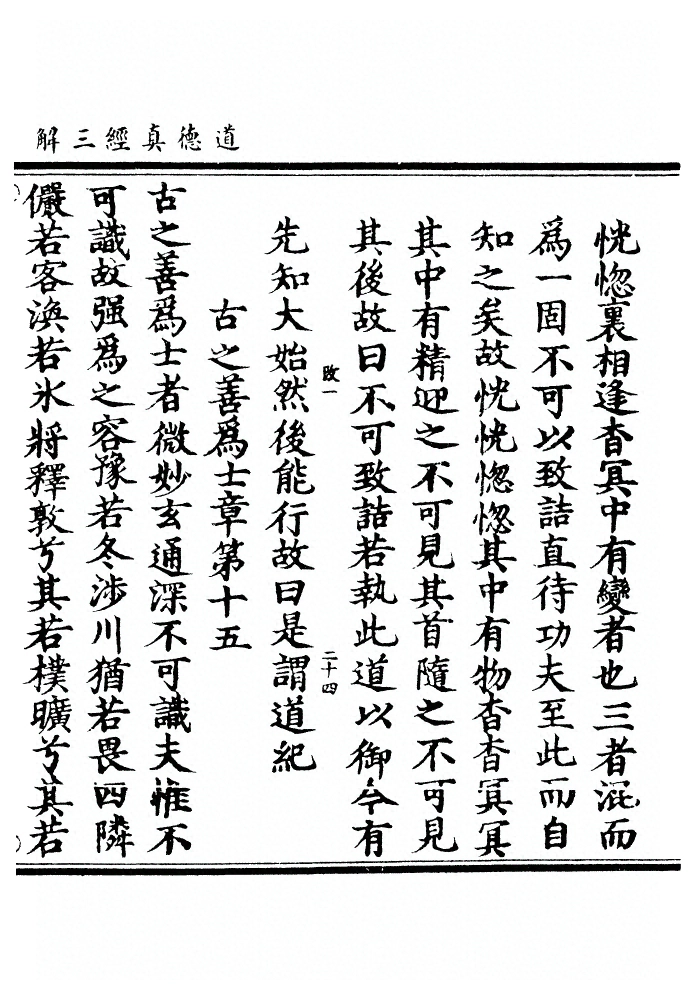 道德真經三解
恍惚裏相逢杳冥中有變者也三者混而
為一固不可以致詰直待功夫至此而自
知之矣故恍恍惚惚其中有物杳杳冥冥
其中有精迎之不可見其首隨之不可見
其後故曰不可致詰若執此道以御今有
敢一
二十四
先知大始然後能行故曰是謂道紀
古之善為士章第十五
古之善為士者微妙玄通深不可識夫惟不
可識故强為之容豫若冬涉川猶若畏四隣
儼若客渙若氷將釋敦兮其若樸曠兮其若